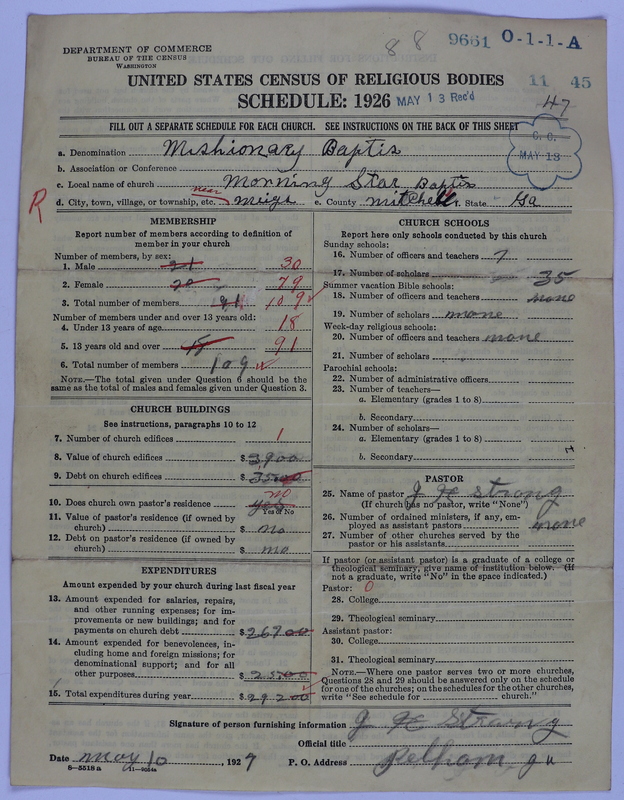 8 8 9661 O-1-1-A
DEPARTMENT OF COMMERCE
BUREAU OF THE CENSUS
WASHINGTON
UNITED STATES CENSUS OF RELIGIOUS BODIES 11 45
SCHEDULE: 1926 MAY 13 Rec'd 47
FILL OUT A SEPARATE SCHEDULE FOR EACH CHURCH. SEE INSTRUCTIONS ON THE BACK OF THIS SHEET
C. C.
MAY 13
a. Denomination Mishionary Baptis
b. Association or Conference
c. Local name of church Morning Star Baptis
R d. City, town, village, or township, etc. near Meigs e. County Mitchell f. State Ga
MEMBERSHIP
Report number of members according to definition of
member in your church
Number of members, by sex:
1. Male 21 30
2. Female 20 79
3. Total number of members 109
Number of members under and over 13 years old:
4. Under 13 years of age 18
5. 13 years old and over 18 91
6. Total number of members 109
NOTE.—The total given under Question 6 should be the
same as the total of males and females given under Question 3.
CHURCH BUILDINGS
See instructions, paragraphs 10 to 12
7. Number of church edifices 1
8. Value of church edifices $ 3900
9. Debt on church edifices $ 3500
no
10. Does church own pastor's residence yes
Yes or No
11. Value of pastor's residence (if owned by
church) $ no
12. Debt on pastor's residence (if owned by
church) $ no
EXPENDITURES
Amount expended by your church during last fiscal year
13. Amount expended for salaries, repairs,
and other running expenses; for im-
provements or new buildings; and for
payments on church debt $ 26700
14. Amount expended for benevolences, in-
cluding home and foreign missions; for
denominational support; and for all
other purposes $ 2500
15. Total expenditures during year $ 29200
CHURCH SCHOOLS
Report here only schools conducted by this church
Sunday schools:
16. Number of officers and teachers 7
17. Number of scholars 35
Summer vacation Bible schools:
18. Number of officers and teachers none
19. Number of scholars none
Week-day religious schools:
20. Number of officers and teachers none
21. Number of scholars
Parochial schools:
22. Number of administrative officers
23. Number of teachers—
a. Elementary (grades 1 to 8)
b. Secondary
24. Number of scholars—
a. Elementary (grades 1 to 8)
b. Secondary
PASTOR
25. Name of pastor J H Strong
(If church has no pastor, write "None")
26. Number of ordained ministers, if any, em-
ployed as assistant pastors none
27. Number of other churches served by the
pastor or his assistants
If pastor (or assistant pastor) is a graduate of a college or
theological seminary, give name of institution below. (If
not a graduate, write "No" in the space indicated.)
Pastor: 0
28. College
29. Theological seminary
Assistant pastor:
30. College
31. Theological seminary
NOTE.—Where one pastor serves two or more churches,
Questions 28 and 29 should be answered only on the schedule
for one of the churches; on the schedules for the other churches,
write "See schedule for church."
Signature of person furnishing information J H Strong
Official title
Date May 10, 1927 P. O. Address Pelham ga
8—5518 a 11—9064a